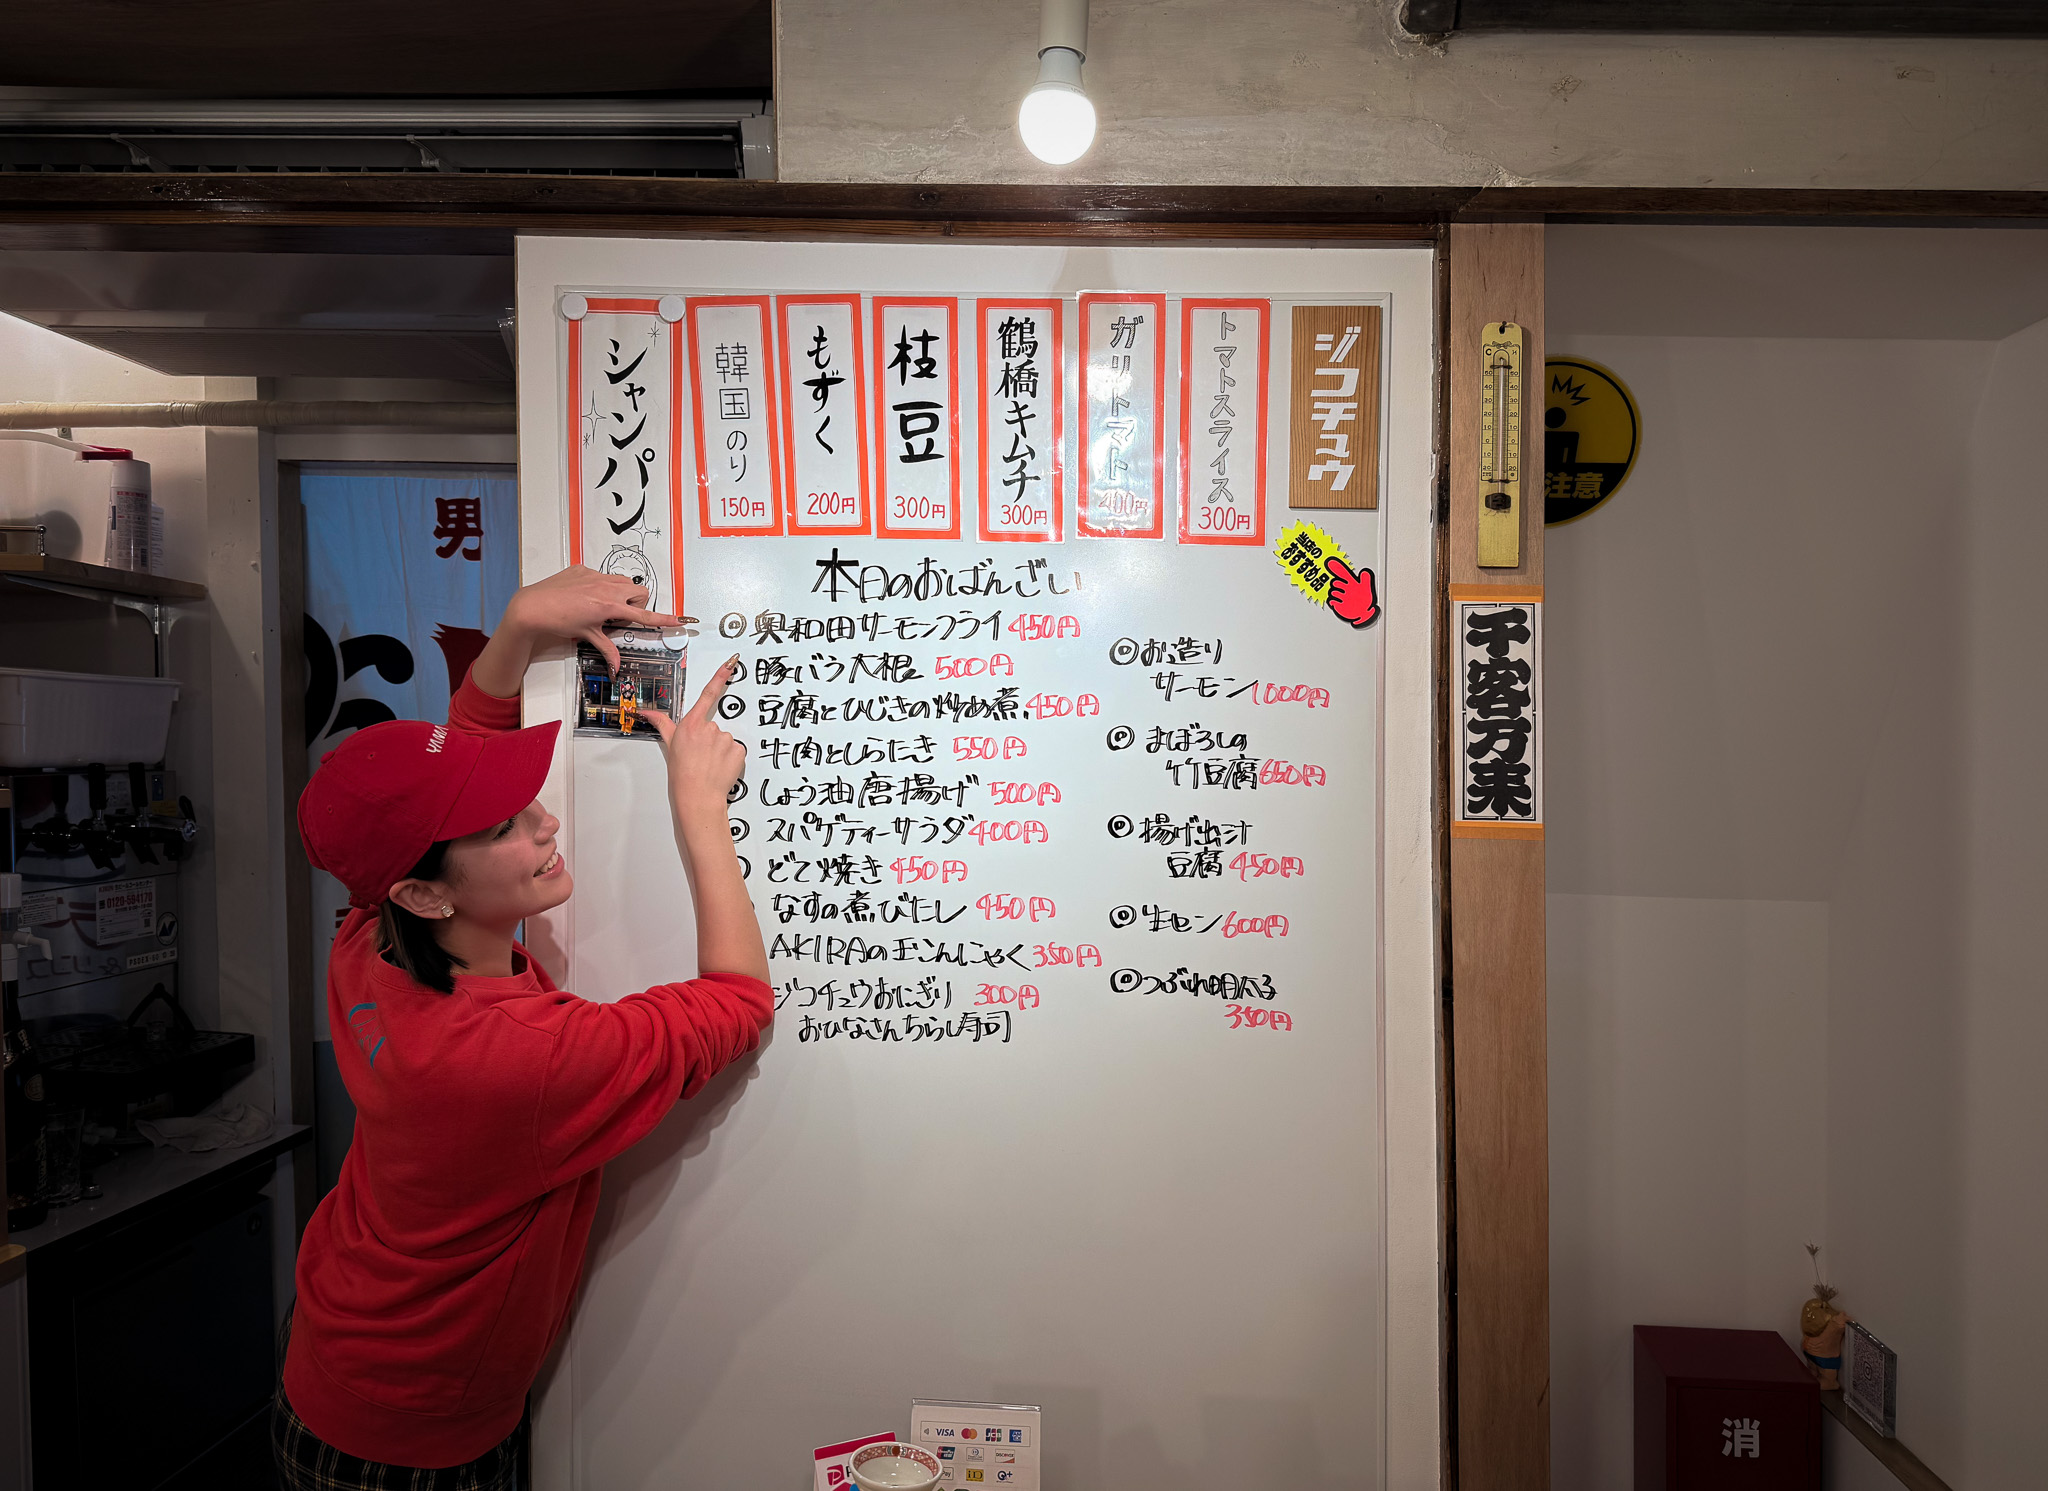 シャンパン
韓国のり
150円
もずく
200円
枝豆
300円
鶴橋キムチ
300円
ガリトマト
400円
トマトスライス
300円
ジコチュウ
当店の
おすすめ品
本日のおばんざい
奥和田サーモンフライ 450円
豚バラ大根 500円
豆腐とひじきの炒め煮 450円
牛肉としらたき 550円
しょう油唐揚げ 500円
スパゲティーサラダ 400円
どて焼き 450円
なすの煮びたし 450円
AKIRAの玉こんにゃく 350円
ジコチュウおにぎり 300円
おひなさんちらし寿司
お造り
サーモン 1000円
まぼろしの
竹豆腐 650円
揚げ出汁
豆腐 450円
生セン 600円
つぶれ明太子
350円
千客万来
注意
男
0120-594170
消
VISA
JCB
DISCOVER
Pay
iD